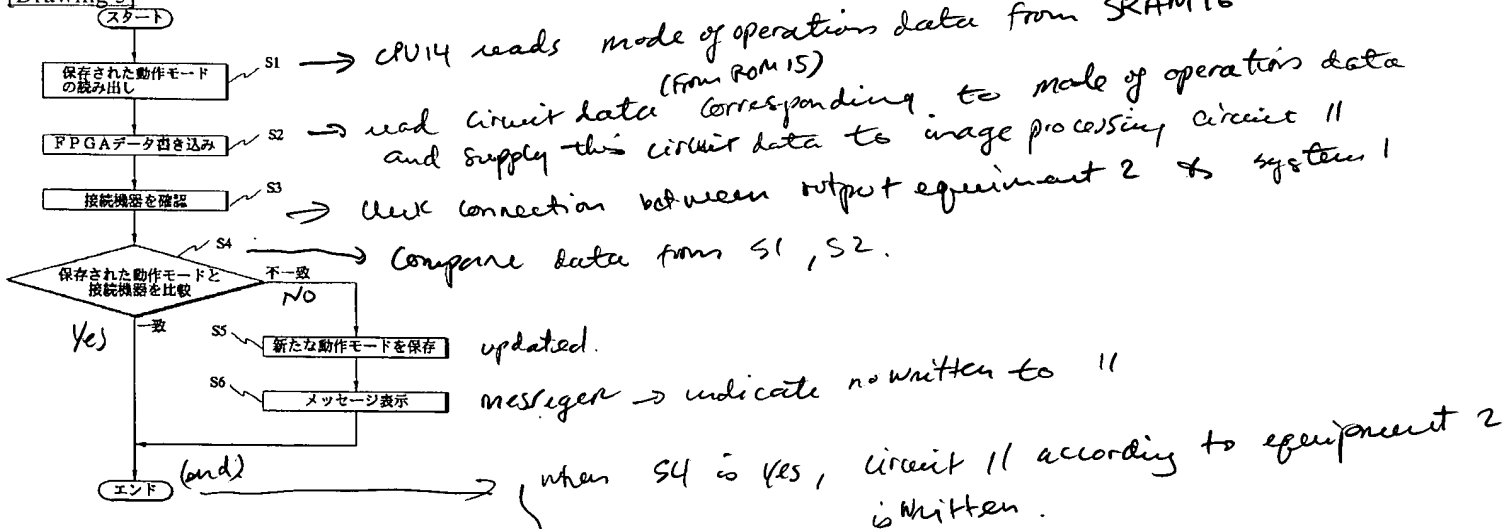 [Drawing 3]
スタート
保存された動作モード
の読み出し
S1
→ CPU14 reads mode of operations data from SRAM16
(From ROM 15)
FPGAデータ書き込み
S2
→ read circuit data corresponding to mode of operations data
and supply this circuit data to image processing circuit 11
接続機器を確認
S3
→ check connection between output equipment 2 & system 1
S4
→ Compare data from S1, S2.
保存された動作モードと
接続機器を比較
不一致
NO
Yes
一致
S5
新たな動作モードを保存
updated.
S6
メッセージ表示
→ indicate no written to 11
エンド
(end)
→ when S4 is Yes, circuit 11 according to equipment 2
is written.